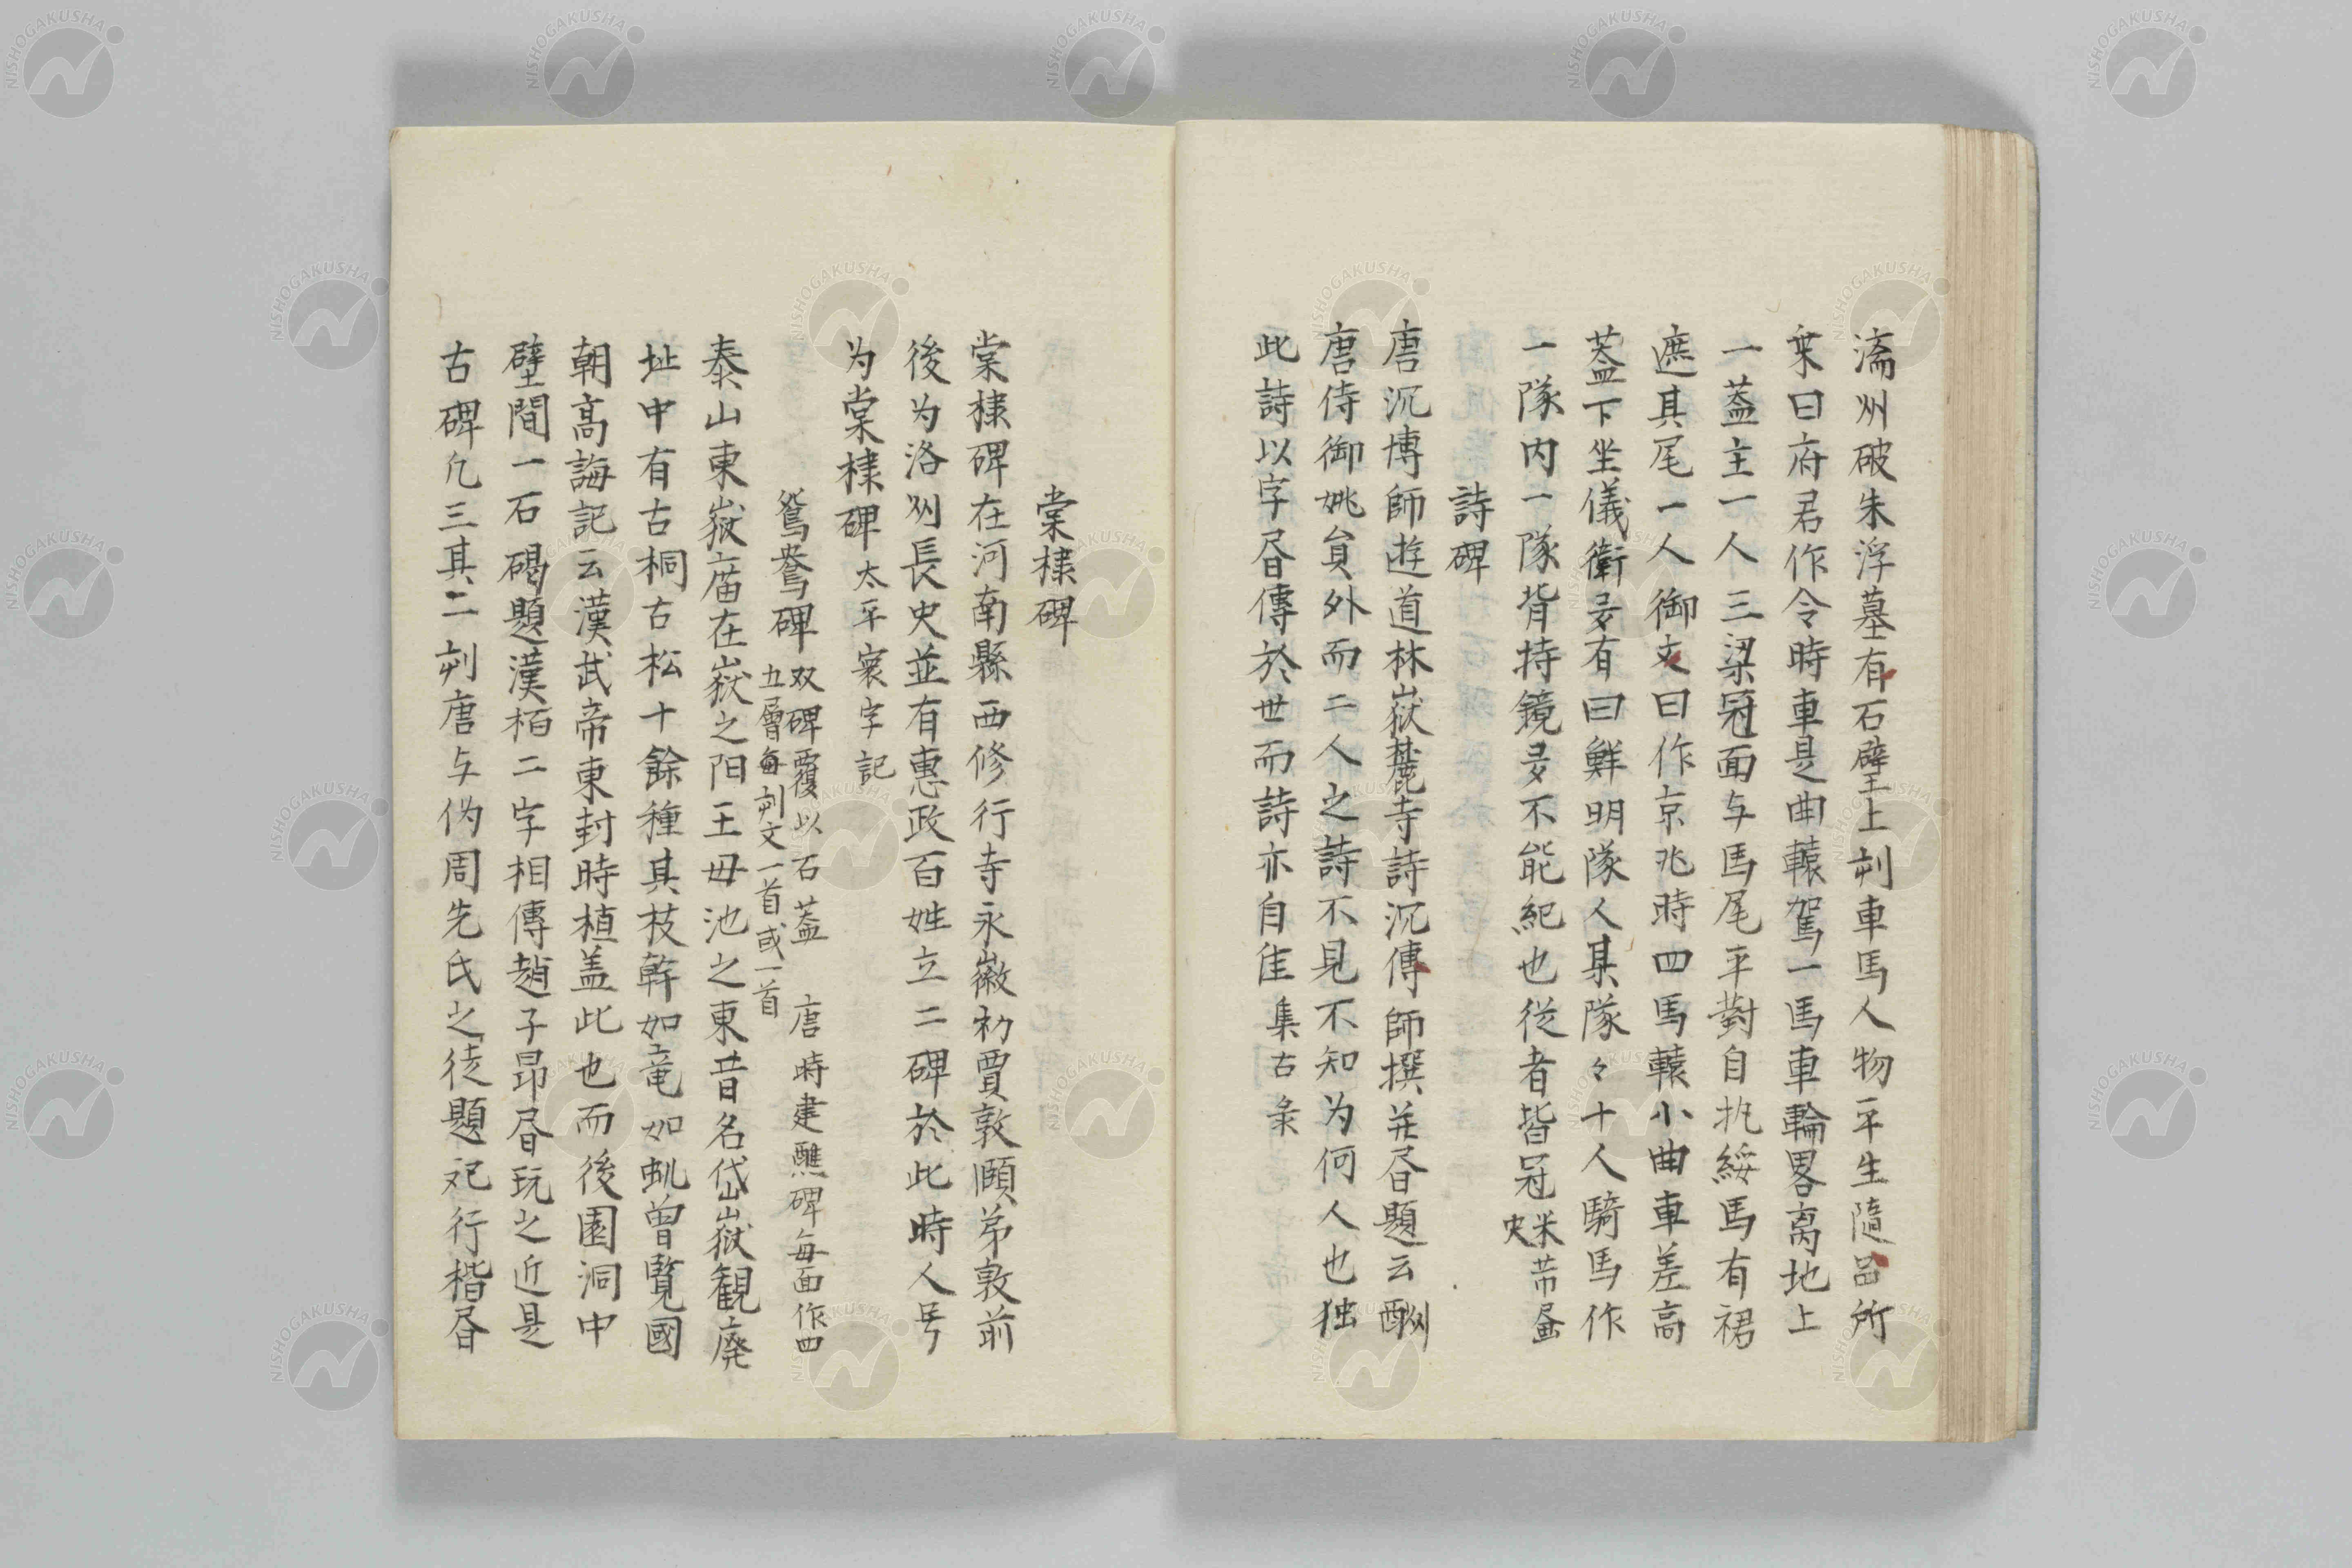 濡州破朱浮墓有石壁上刻車馬人物平生隨品所
乗曰府君作令時車是曲轅駕一馬車輪畧离地上
一蓋主一人三梁冠面与馬尾平對自扎綏馬有裙
遮其尾一人御文曰作京兆時四馬轅小曲車差高
蓋下坐儀衛多有曰鮮明隊人某隊々十人騎馬作
一隊内一隊背持鏡多不能紀也従者皆冠米芾畫史
詩碑
唐沉博師遊道林嶽麓寺詩沉傳師撰并書題云酬
唐侍御姚貟外而二人之詩不見不知为何人也独
此詩以字書傳於世而詩亦自佳集古彔
棠棣碑
棠棣碑在河南縣西修行寺永徽初賈敦頤弟敦前
後为洛州長史並有惠政百姓立二碑於此時人号
为棠棣碑太平寰宇記
鴛鴦碑双碑覆以石蓋 唐時建醮碑每面作四
五層每刻文一首或二首
泰山東嶽庙在嶽之阳王母池之東昔名岱嶽観廃
址中有古桐古松十餘種其枝幹如竜如虬曽覧國
朝高誨記云漢武帝東封時植盖此也而後園洞中
壁間一石碣題漢栢二字相傳趙子昂書玩之近是
古碑凡三其二刻唐与伪周先氏之徒題祀行楷書
NISHOGAKUSHA